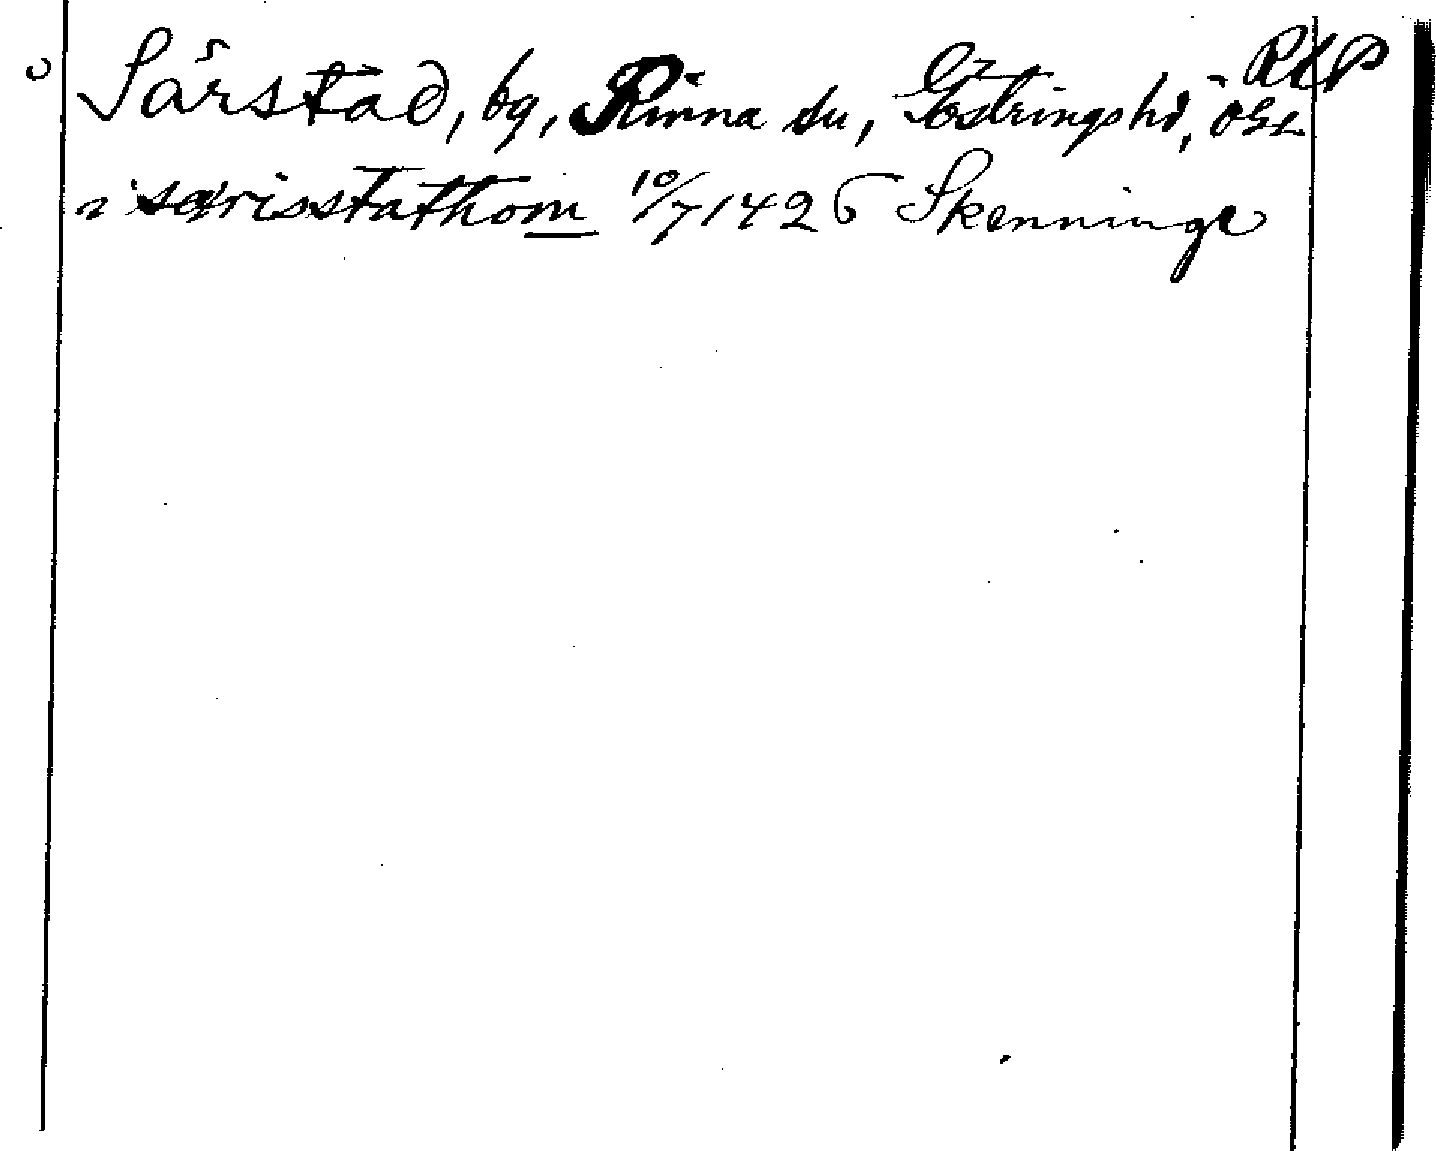 RAP
Särstad, by, Rinna sn, Göstrings hd, ÖGL
i særisstathom 10/7 1426 Skenninge